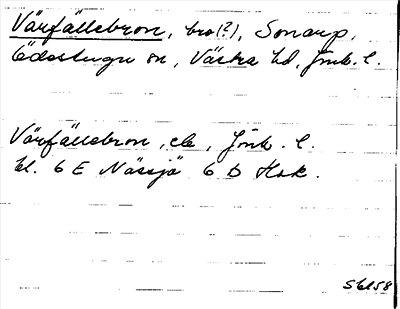 Värfällebron, bro(?), Sonarp,
Ödestugu sn, Västra hd, Jönk. l.
Värfällebron, ele, Jönk. l.
bl. 6 E Nässjö 6 D Hok.